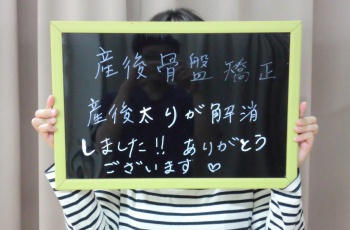 産後骨盤矯正
産後太りが解消
しました!! ありがとう
ございます♡